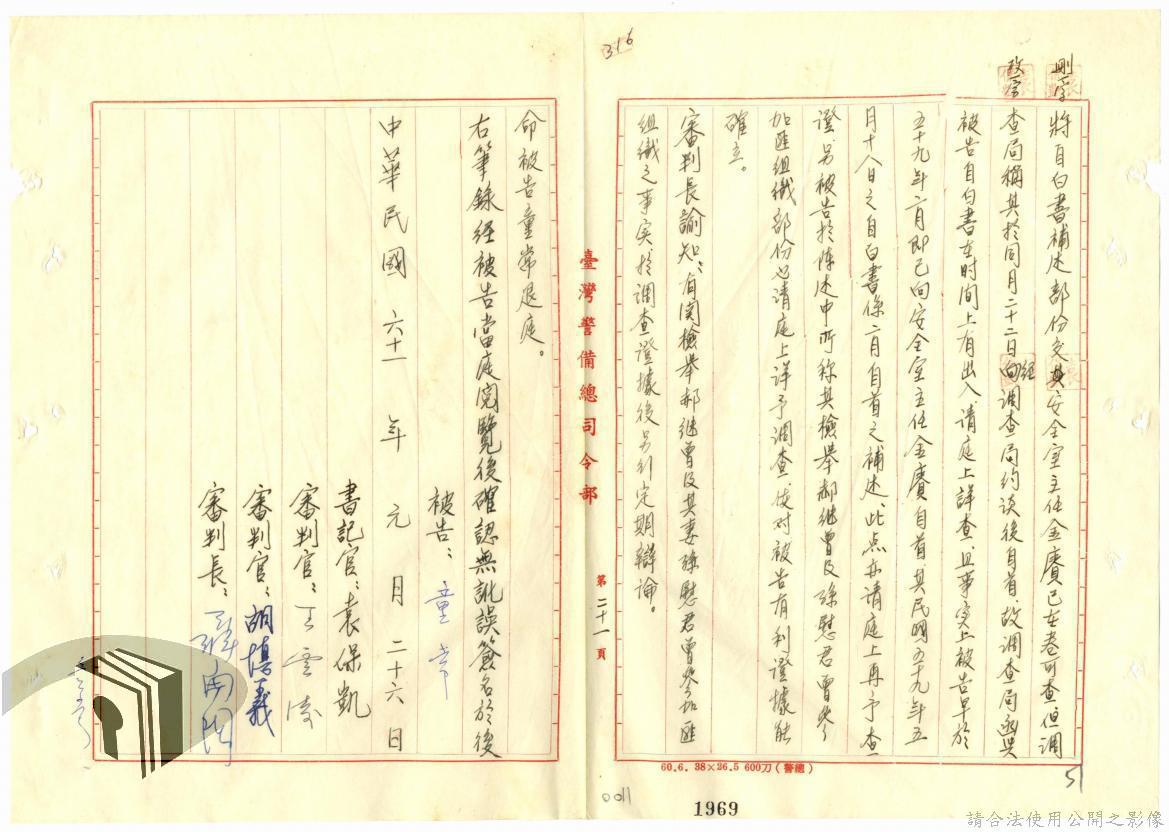 316
刪一字
改一字
將自白書補述部份交其安全室主任金賡已在卷可查但調
查局稱其於同月二十二日向經調查局約談後自首、故調查局函與
被告自白書在時間上有出入請庭上詳查、且事實上被告早於
五十九年二月即已向安全室主任金賡自首、其民國五十九年五
月十八日之自白書係二月自首之補述、此点亦請庭上再予查
證、另被告於陳述中所称其檢舉郝继曾及孫慰君曾參
加匪組織部份也請庭上詳予調查、使对被告有利證據能
確立。
審判長諭知:有関檢舉郝继曾及其妻孫慰君曾参加匪
組織之事实於調查證據後另行定期辯論。
臺灣警備總司令部
第二十一頁
命被告童常退庭。
右筆錄經被告當庭閱覽後確認無訛誤簽名於後
中華民國六十一年元月二十六日
被告:童常
書記官:袁保凱
審判官:王雲濤
審判官:胡慎義
審判長:
童常
60.6. 38×26.5 600刀(警總)
51
0011
1969
請合法使用公開之影像